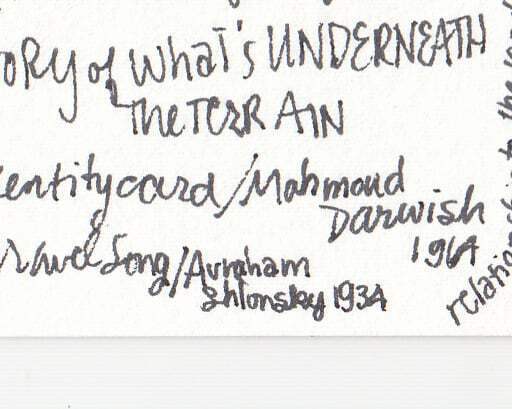 ORY of What's UNDERNEATH
The TERRAIN
entity card/Mahmoud
Darwish
1964
&
ravel Song/Avraham
Shlonsky 1934
relationship to the land